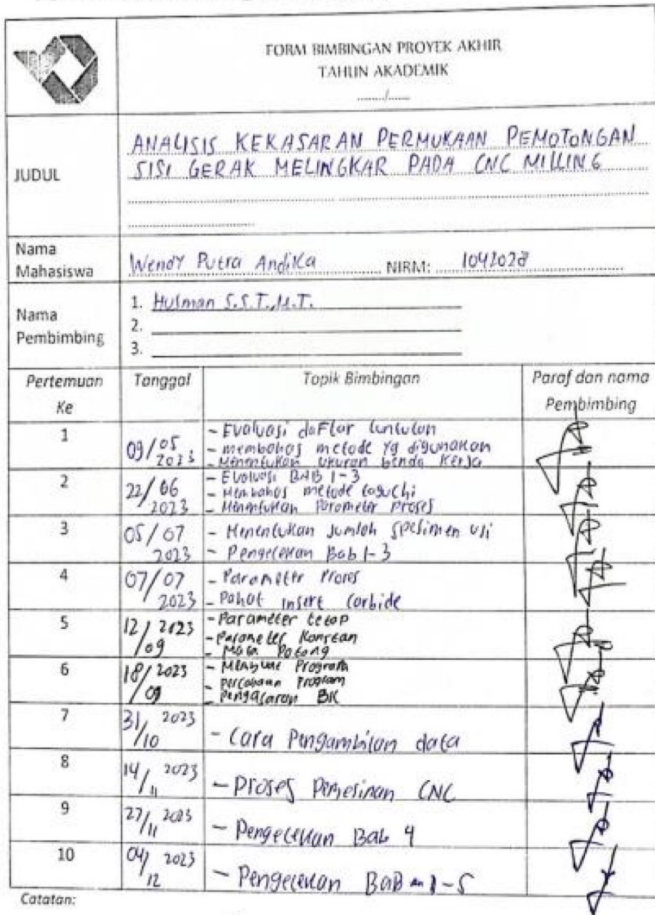 FORM BIMBINGAN PROYEK AKHIR
TAHUN AKADEMIK
......../........
JUDUL
ANALISIS KEKASARAN PERMUKAAN PEMOTONGAN
SISI GERAK MELINGKAR PADA CNC MILLING
Nama
Mahasiswa
Wendy Putra Andika NIRM: 1042028
Nama
Pembimbing
1. Husman S.S.T.,M.T.
2.
3.
Pertemuan
Ke
Tanggal
Topik Bimbingan
Paraf dan nama
Pembimbing
1
09/05
2023
- Evaluasi daftar
- membahas metode yg digunakan
- Menentukan ukuran benda kerja
2
22/06
2023
- Evaluasi BAB 1-3
- Membahas metode taguchi
- Menentukan Parameter Proses
3
05/07
2023
- Menentukan Jumlah spesimen uji
- Pengecekan Bab 1-3
4
07/07
2023
- Parameter Proses
- Pahat insert Carbide
5
12/2023
/09
- Parameter tetap
- Parameter Konstan
- Potong
6
18/2023
/09
- Program
- Percobaan Program
- BK
7
31/2023
/10
- Cara Pengambilan data
8
14/2023
/11
- Proses Pemesinan CNC
9
27/2023
/11
- Pengecekan Bab 4
10
04/2023
/12
- Pengecekan BAB 1-5
Catatan: